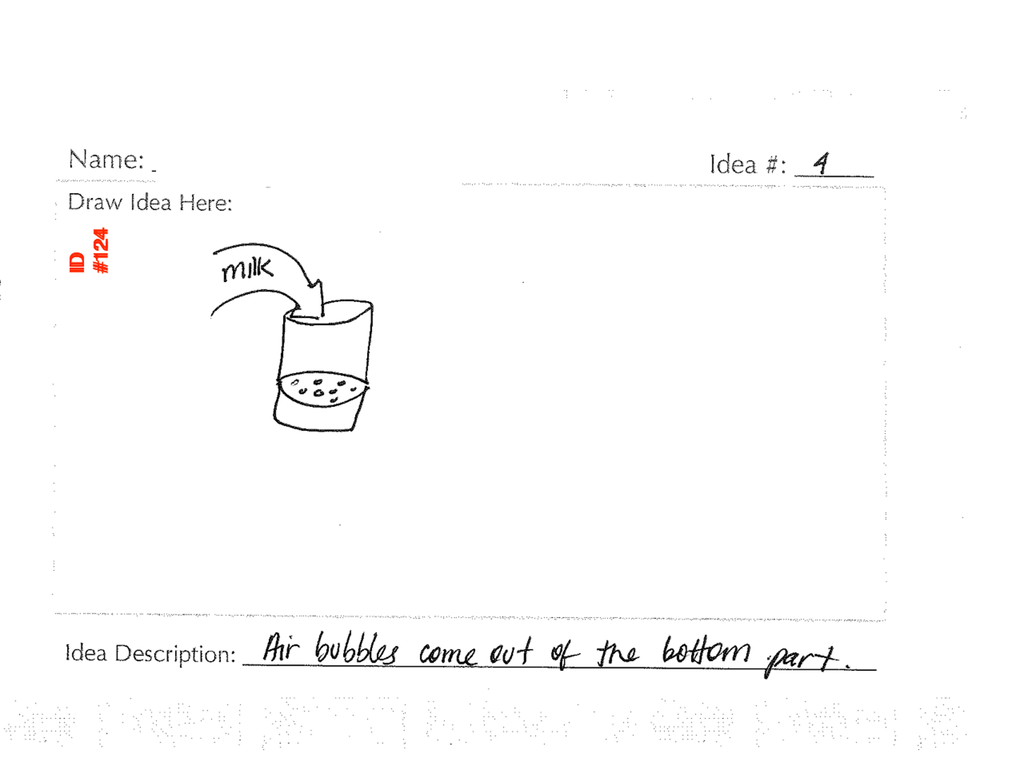 Name:
Idea #: 4
Draw Idea Here:
ID
#124
milk
Idea Description: Air bubbles come out of the bottom part.